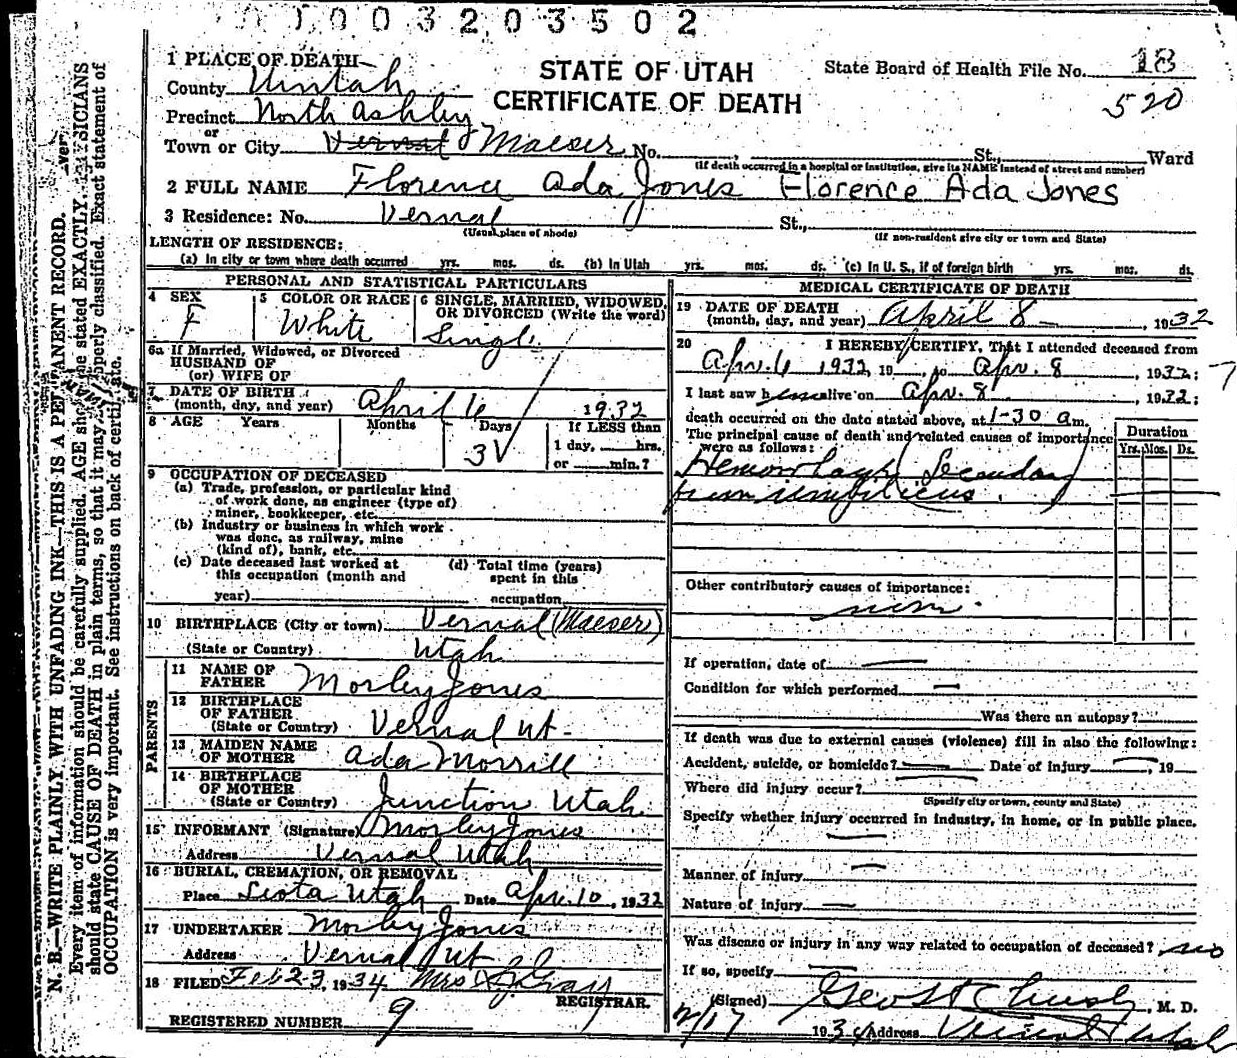 0003203502
STATE OF UTAH
CERTIFICATE OF DEATH
State Board of Health File No. 18
520
1 PLACE OF DEATH
County Uintah
Precinct North Ashley
or
Town or City Vernal Maeser No. St., Ward
(If death occurred in a hospital or institution, give its NAME instead of street and number)
2 FULL NAME Florence Ada Jones Florence Ada Jones
3 Residence: No. Vernal St.,
(Usual place of abode) (If non-resident give city or town and State)
LENGTH OF RESIDENCE:
(a) In city or town where death occurred yrs. mos. ds. (b) In Utah yrs. mos. ds. (c) In U. S., if of foreign birth yrs. mos. ds.
PERSONAL AND STATISTICAL PARTICULARS
4 SEX F
5 COLOR OR RACE White
6 SINGLE, MARRIED, WIDOWED, OR DIVORCED (Write the word) Single
6a If Married, Widowed, or Divorced
HUSBAND OF
(or) WIFE OF
7 DATE OF BIRTH
(month, day, and year) April 4 1932
8 AGE Years Months Days If LESS than
3 1 day, hrs.
or min.?
9 OCCUPATION OF DECEASED
(a) Trade, profession, or particular kind
of work done, as engineer (type of)
miner, bookkeeper, etc.
(b) Industry or business in which work
was done, as railway, mine
(kind of), bank, etc.
(c) Date deceased last worked at
this occupation (month and
year)
(d) Total time (years)
spent in this
occupation
10 BIRTHPLACE (City or town) Vernal (Maeser)
(State or Country) Utah
PARENTS
11 NAME OF
FATHER Morley Jones
12 BIRTHPLACE
OF FATHER
(State or Country) Vernal Ut.
13 MAIDEN NAME
OF MOTHER Ada Morrill
14 BIRTHPLACE
OF MOTHER
(State or Country) Junction Utah
15 INFORMANT (Signature) Morley Jones
Address Vernal Utah
16 BURIAL, CREMATION, OR REMOVAL
Place Leota Utah Date Apr. 10, 1932
17 UNDERTAKER Morley Jones
Address Vernal Ut
18 FILED Feb 23, 1934 Mrs Gray
REGISTRAR.
REGISTERED NUMBER 9
MEDICAL CERTIFICATE OF DEATH
19 DATE OF DEATH
(month, day, and year) April 8, 1932
20 I HEREBY CERTIFY, That I attended deceased from
Apr. 4 1932, 19, to Apr. 8, 1932;
I last saw h alive on Apr. 8, 1932;
death occurred on the date stated above, at 1-30 a m.
The principal cause of death and related causes of importance
were as follows:
Duration
Yrs. Mos. Ds.
Hemorrhage (Secondary)
from umbilicus.
Other contributory causes of importance:
none.
If operation, date of
Condition for which performed
Was there an autopsy?
If death was due to external causes (violence) fill in also the following:
Accident, suicide, or homicide? Date of injury, 19
Where did injury occur?
(Specify city or town, county and State)
Specify whether injury occurred in industry, in home, or in public place.
Manner of injury
Nature of injury
Was disease or injury in any way related to occupation of deceased? no
If so, specify
(Signed) Geo M. D.
2/17 1934 Address Vernal Utah
N. B.—WRITE PLAINLY, WITH UNFADING INK—THIS IS A PERMANENT RECORD.
Every item of information should be carefully supplied. AGE should be stated EXACTLY. PHYSICIANS
should state CAUSE OF DEATH in plain terms, so that it may be properly classified. Exact statement of
OCCUPATION is very important. See instructions on back of certificate.